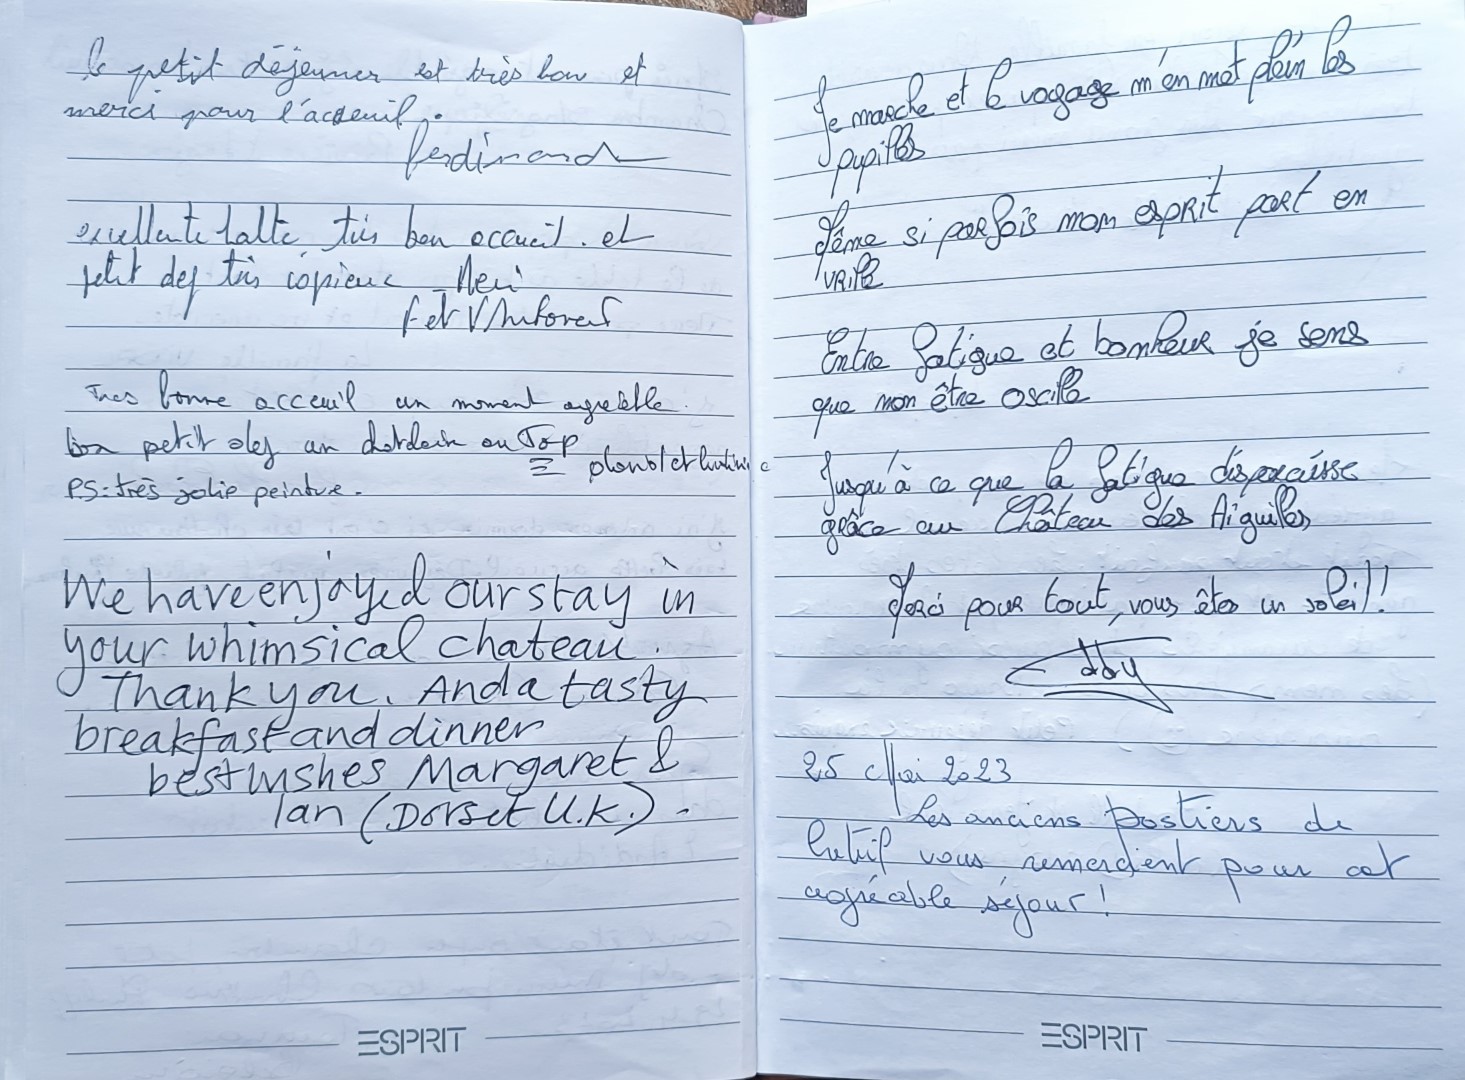 le petit déjeuner est très bon et
merci pour l'acceuil.
Ferdinand
excellente halte très bon accueil. et
petit dej très copieux Merci
F et V
Tres bonne acceuil un moment agréable.
bon petit dej un chatelain au Top
PS: très jolie peinture.
We have enjoyed our stay in
your whimsical chateau.
Thank you. And a tasty
breakfast and dinner
best wishes Margaret &
Ian (Dorset U.K.) -
ESPRIT
Je marche et le voyage m'en met plein les
pupilles
Même si parfois mon esprit part en
vrille
Entre fatigue et bonheur je sens
que mon être oscille
Jusqu'à ce que la fatigue disparaisse
grâce au Château des Aiguilles
Merci pour tout, vous êtes un soleil!
Eddy
25 Mai 2023
Les anciens postiers de
vous remercient pour cet
agréable séjour!
ESPRIT